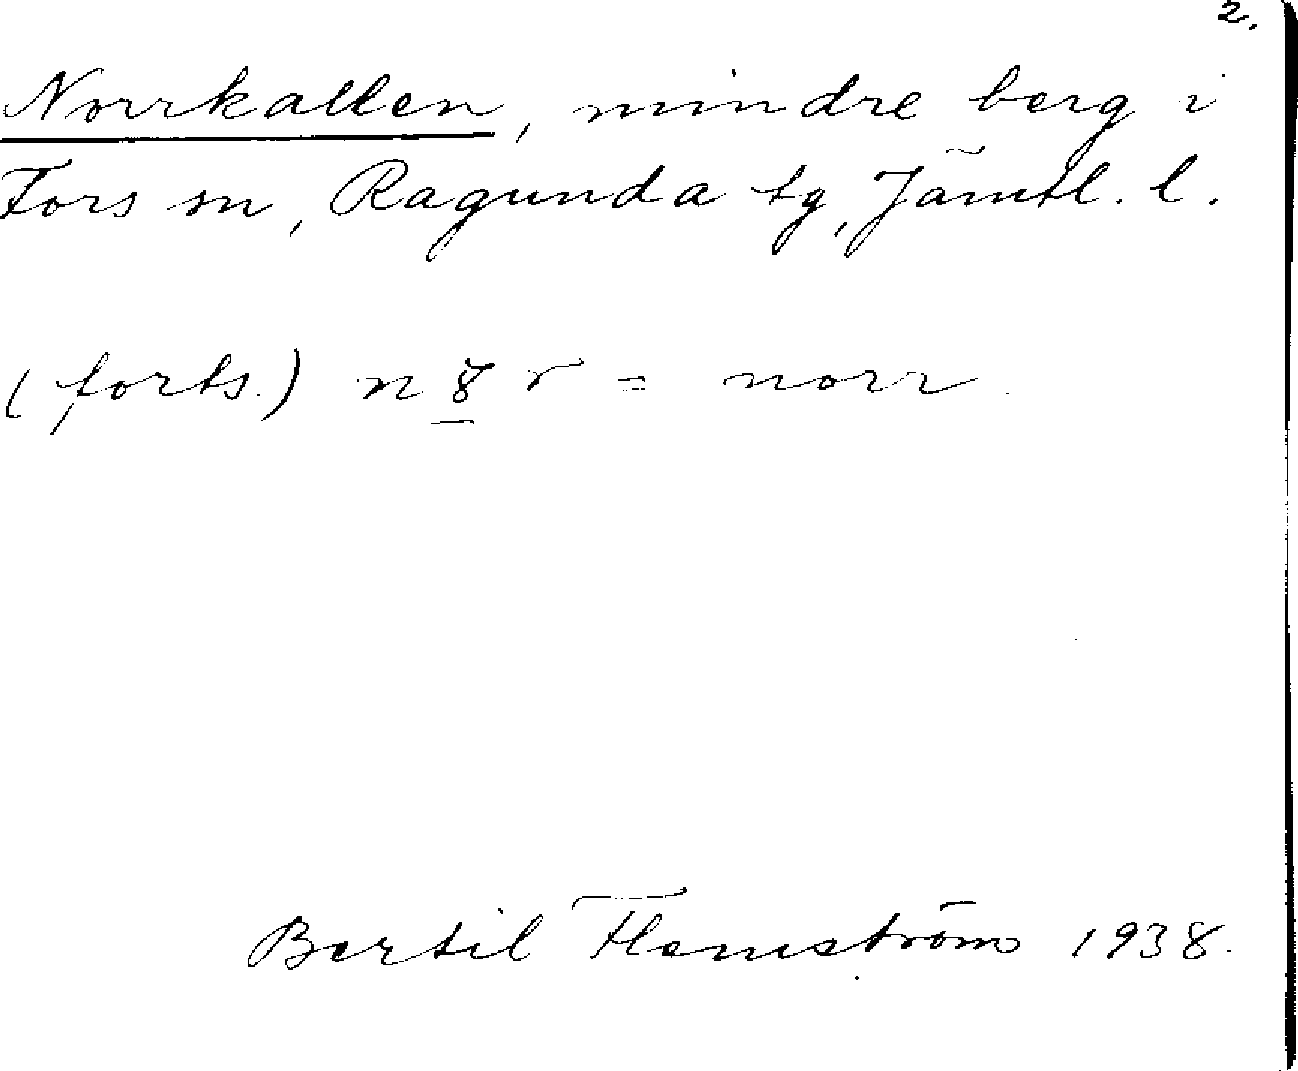 2.
Norrkallen, mindre berg i
Fors sn, Ragunda tg, Jämtl. l.
(forts.) n 8 r = norr.
Bertil Flemström 1938.